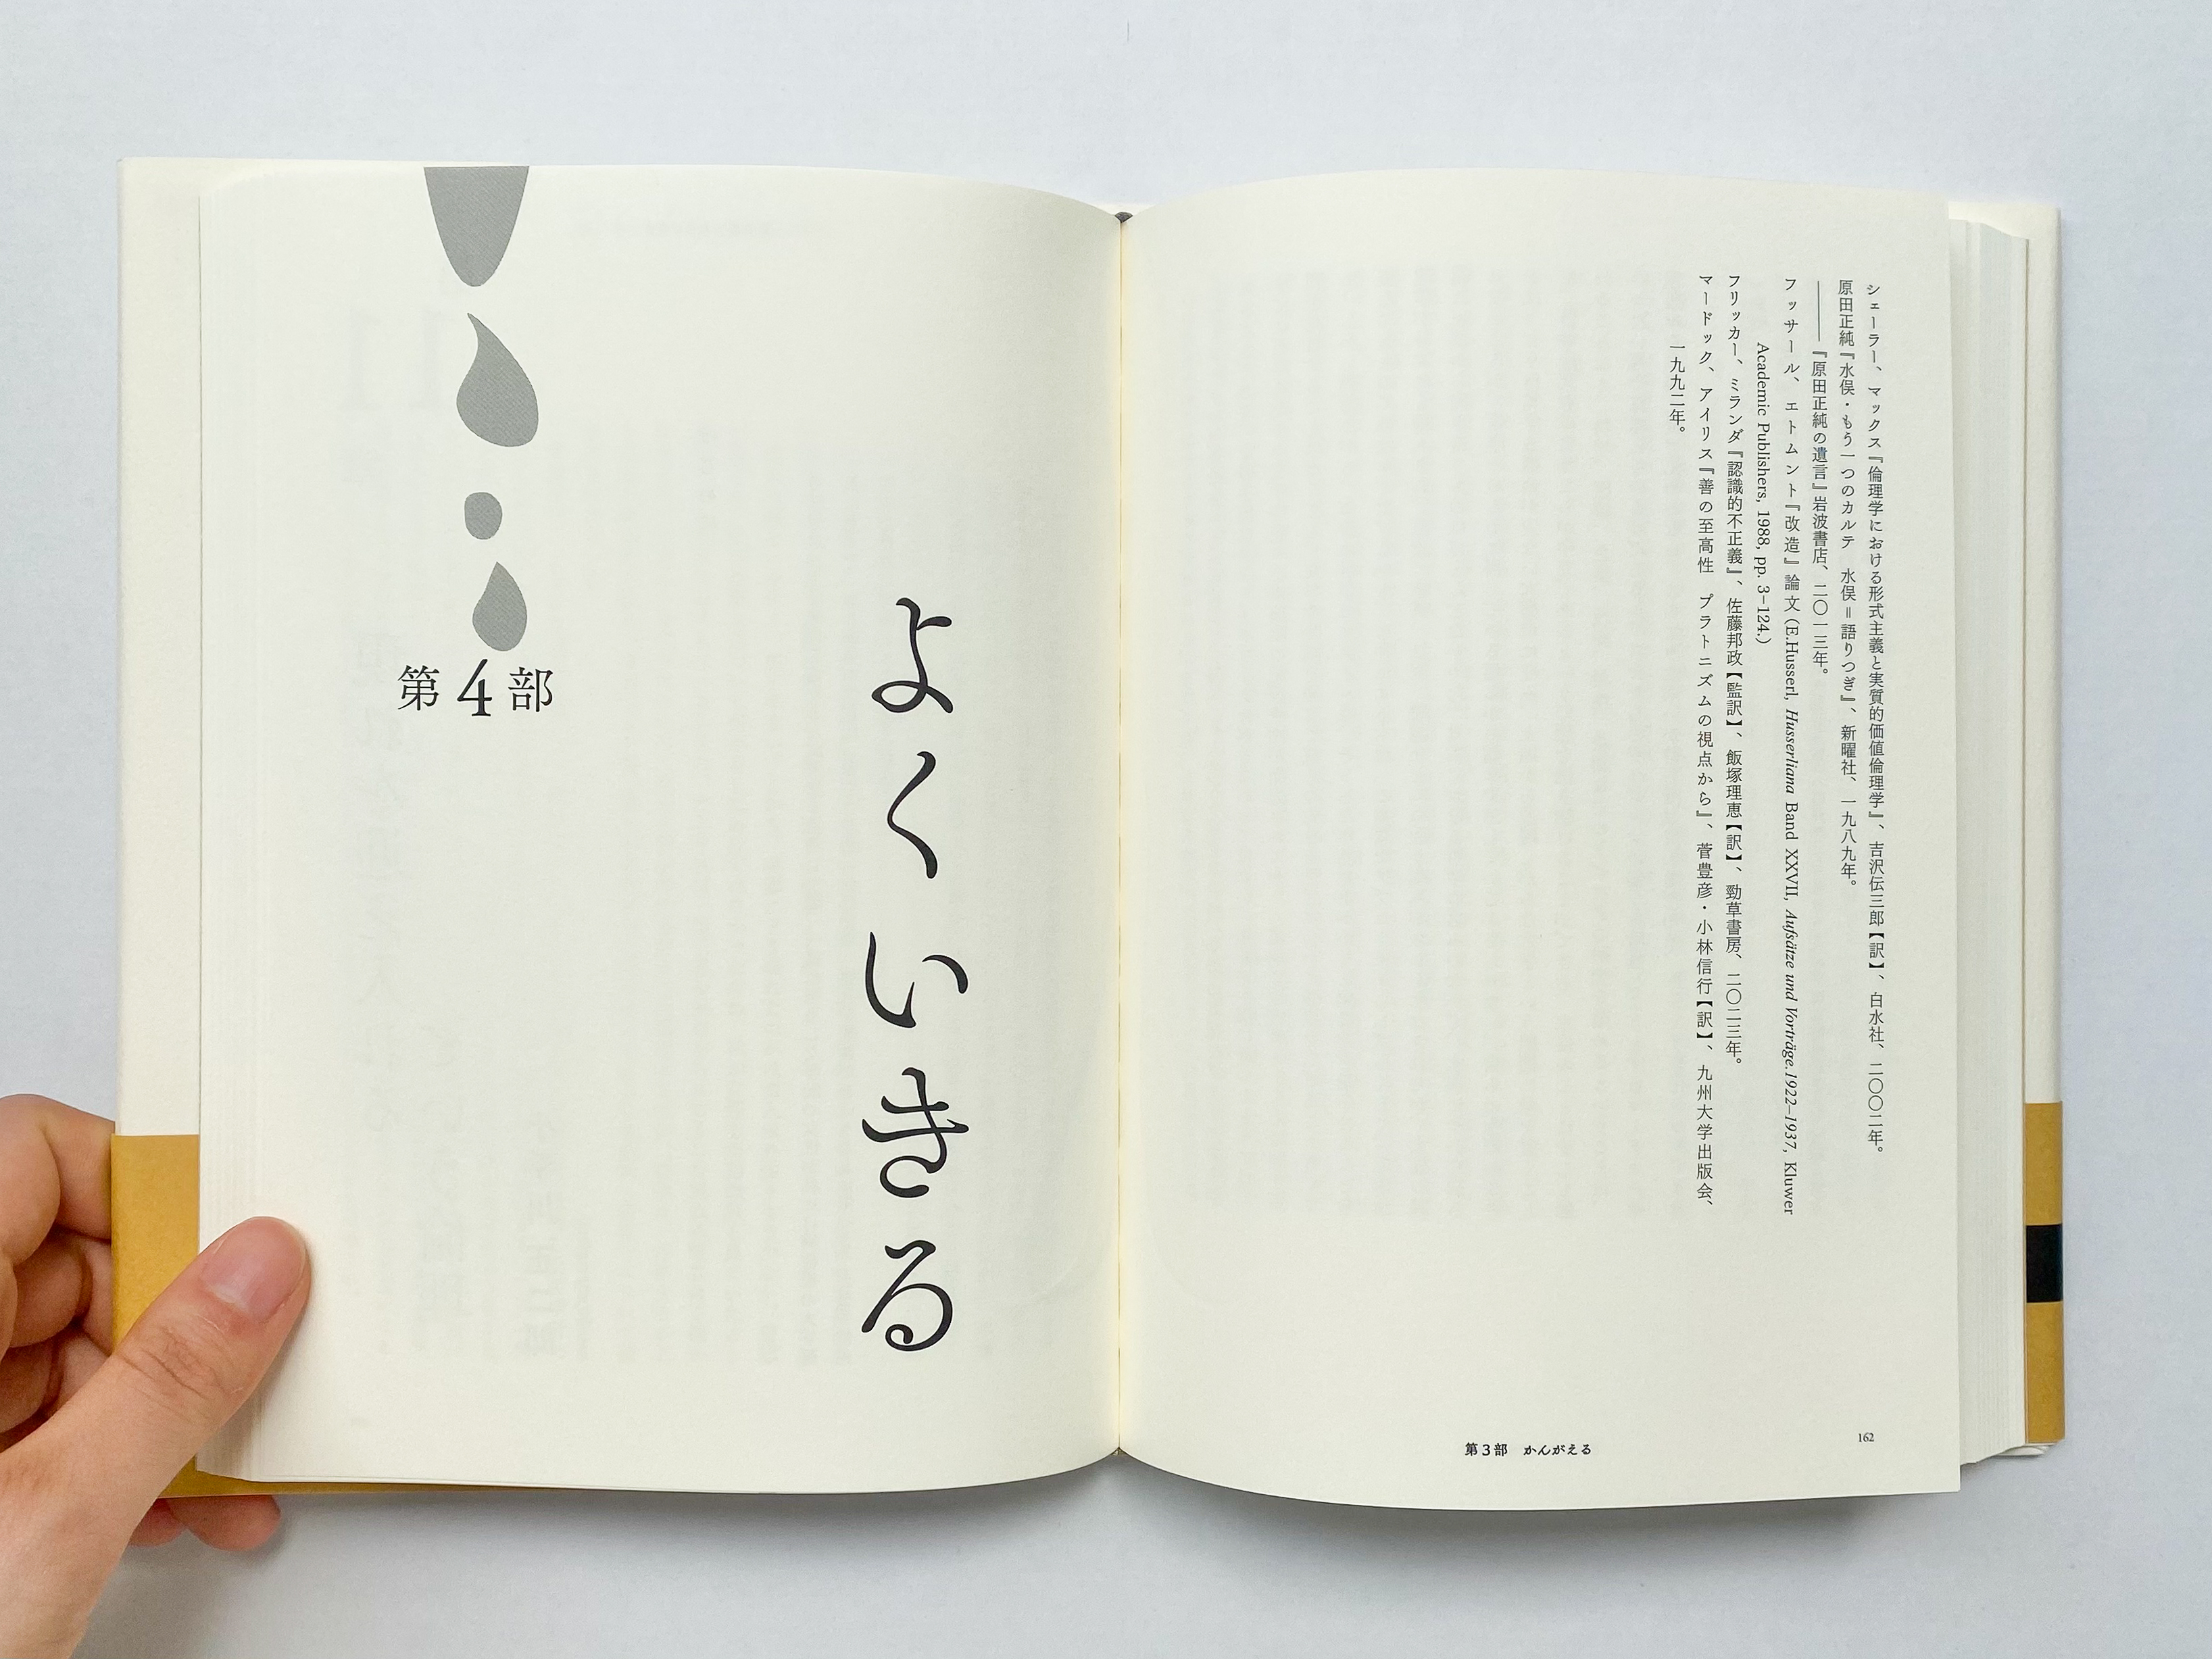 シェーラー、マックス『倫理学における形式主義と実質的価値倫理学』、吉沢伝三郎【訳】、白水社、二〇〇二年。
原田正純『水俣・もう一つのカルテ　水俣＝語りつぎ』、新曜社、一九八九年。
――『原田正純の遺言』岩波書店、二〇一三年。
フッサール、エトムント『改造』論文（E.Husserl, Husserliana Band XXVII, Aufsätze und Vorträge.1922–1937, Kluwer
Academic Publishers, 1988, pp. 3–124.）
フリッカー、ミランダ『認識的不正義』、佐藤邦政【監訳】、飯塚理恵【訳】、勁草書房、二〇二三年。
マードック、アイリス『善の至高性　プラトニズムの視点から』、菅豊彦・小林信行【訳】、九州大学出版会、
一九九二年。
第3部　かんがえる
162
よくいきる
第4部